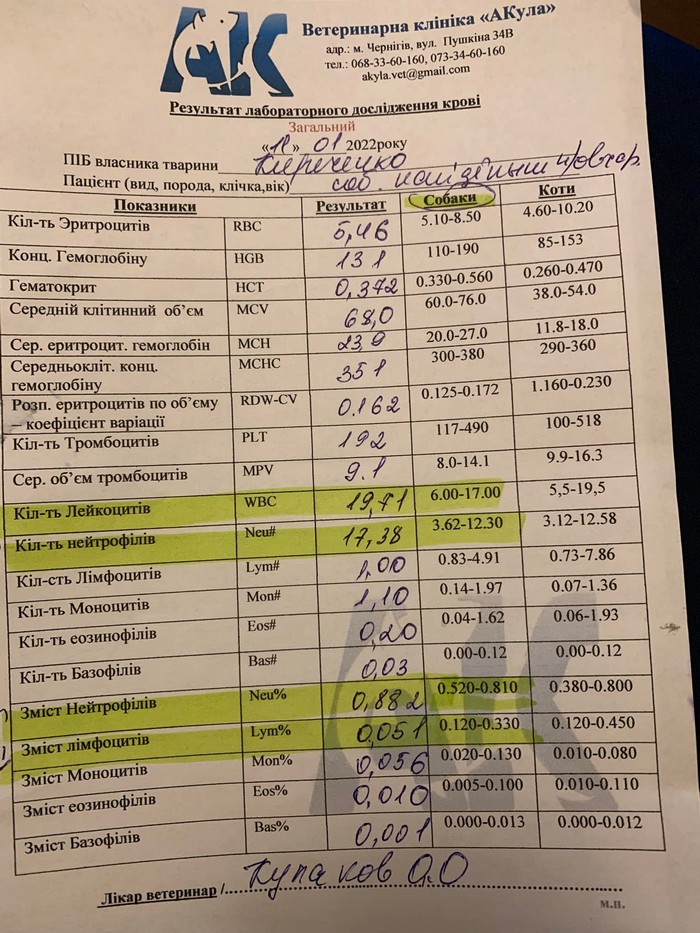 АК
Ветеринарна клініка «АКула»
адр.: м. Чернігів, вул. Пушкіна 34В
тел.: 068-33-60-160, 073-34-60-160
akyla.vet@gmail.com
Результат лабораторного дослідження крові
Загальний
« » 01 2022року
ПІБ власника тварини Кириченко
Пацієнт (вид, порода, клічка,вік) соб.
Показники Результат Собаки Коти
Кіл-ть Эритроцитів RBC 5,46 5.10-8.50 4.60-10.20
Конц. Гемоглобіну HGB 131 110-190 85-153
Гематокрит HCT 0,372 0.330-0.560 0.260-0.470
Середній клітинний об’єм MCV 68,0 60.0-76.0 38.0-54.0
Сер. еритроцит. гемоглобін MCH 23,9 20.0-27.0 11.8-18.0
Середньокліт. конц. гемоглобіну MCHC 351 300-380 290-360
Розп. еритроцитів по об’єму – коефіцієнт варіації RDW-CV 0.162 0.125-0.172 1.160-0.230
Кіл-ть Тромбоцитів PLT 192 117-490 100-518
Сер. об’єм тромбоцитів MPV 9.1 8.0-14.1 9.9-16.3
Кіл-ть Лейкоцитів WBC 19,71 6.00-17.00 5,5-19,5
Кіл-ть нейтрофілів Neu# 17,38 3.62-12.30 3.12-12.58
Кіл-сть Лімфоцитів Lym# 1,00 0.83-4.91 0.73-7.86
Кіл-ть Моноцитів Mon# 1,10 0.14-1.97 0.07-1.36
Кіл-ть еозинофілів Eos# 0,20 0.04-1.62 0.06-1.93
Кіл-ть Базофілів Bas# 0,03 0.00-0.12 0.00-0.12
Зміст Нейтрофілів Neu% 0,882 0.520-0.810 0.380-0.800
Зміст лімфоцитів Lym% 0,051 0.120-0.330 0.120-0.450
Зміст Моноцитів Mon% 0,056 0.020-0.130 0.010-0.080
Зміст еозинофілів Eos% 0,010 0.005-0.100 0.010-0.110
Зміст Базофілів Bas% 0,001 0.000-0.013 0.000-0.012
Лікар ветеринар / Купаков О.О
м.п.